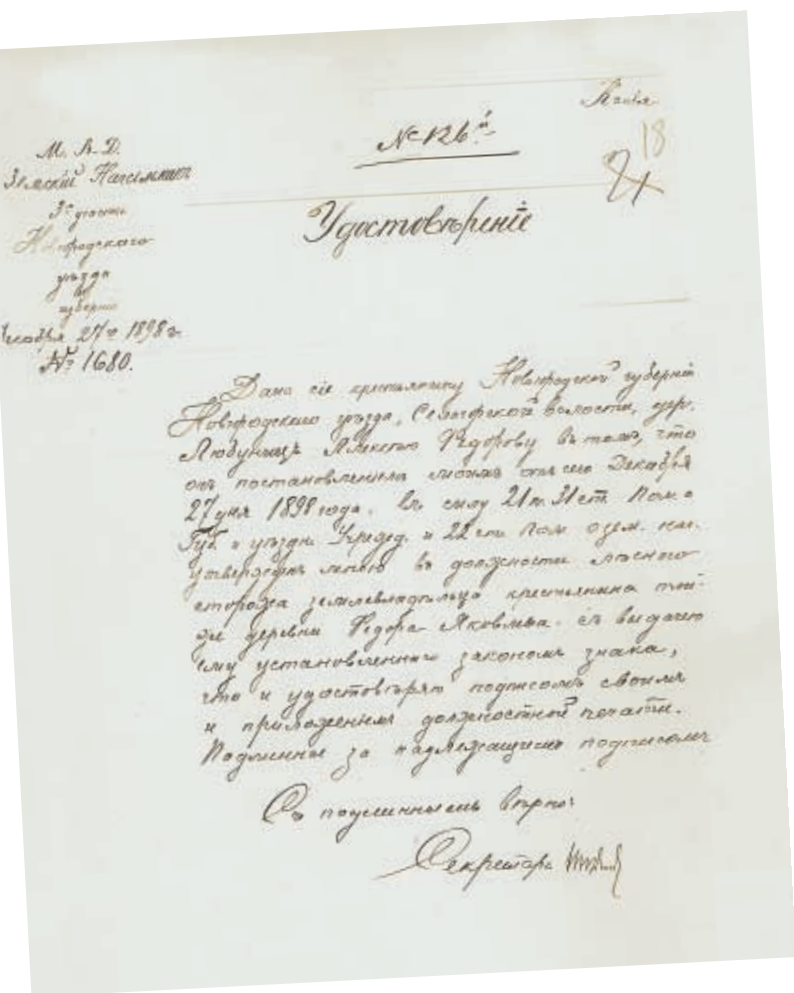 Копія
№ 126й
18
21
М. В. Д.
Земскій Начальникъ
3го участка
Новгородскаго
уѣзда
губерніи
Декабря 27го 1898 г.
№ 1680.
Удостовѣреніе
Дано сіе крестьянину Новгородской губерніи
Новгородскаго уѣзда, Самокрской волости, дер.
Любуницъ Алексѣю Федорову въ томъ, что
онъ постановленіемъ моимъ отъ сего Декабря
27 дня 1898 года, въ силу 21 п. 31 ст. Пол. о
Губ. и уѣздн. Учрежд. и 22 ст. Пол. о зем. нач.
утвержденъ мною въ должности лѣсного
сторожа землевладѣльца крестьянина той-
же деревни Федора Яковлева съ выдачею
ему установленнаго закономъ знака,
что и удостовѣряю подписомъ своимъ
и приложеніемъ должностной печати.
Подлинное за надлежащимъ подписомъ
Съ подлиннымъ вѣрно:
Секретарь